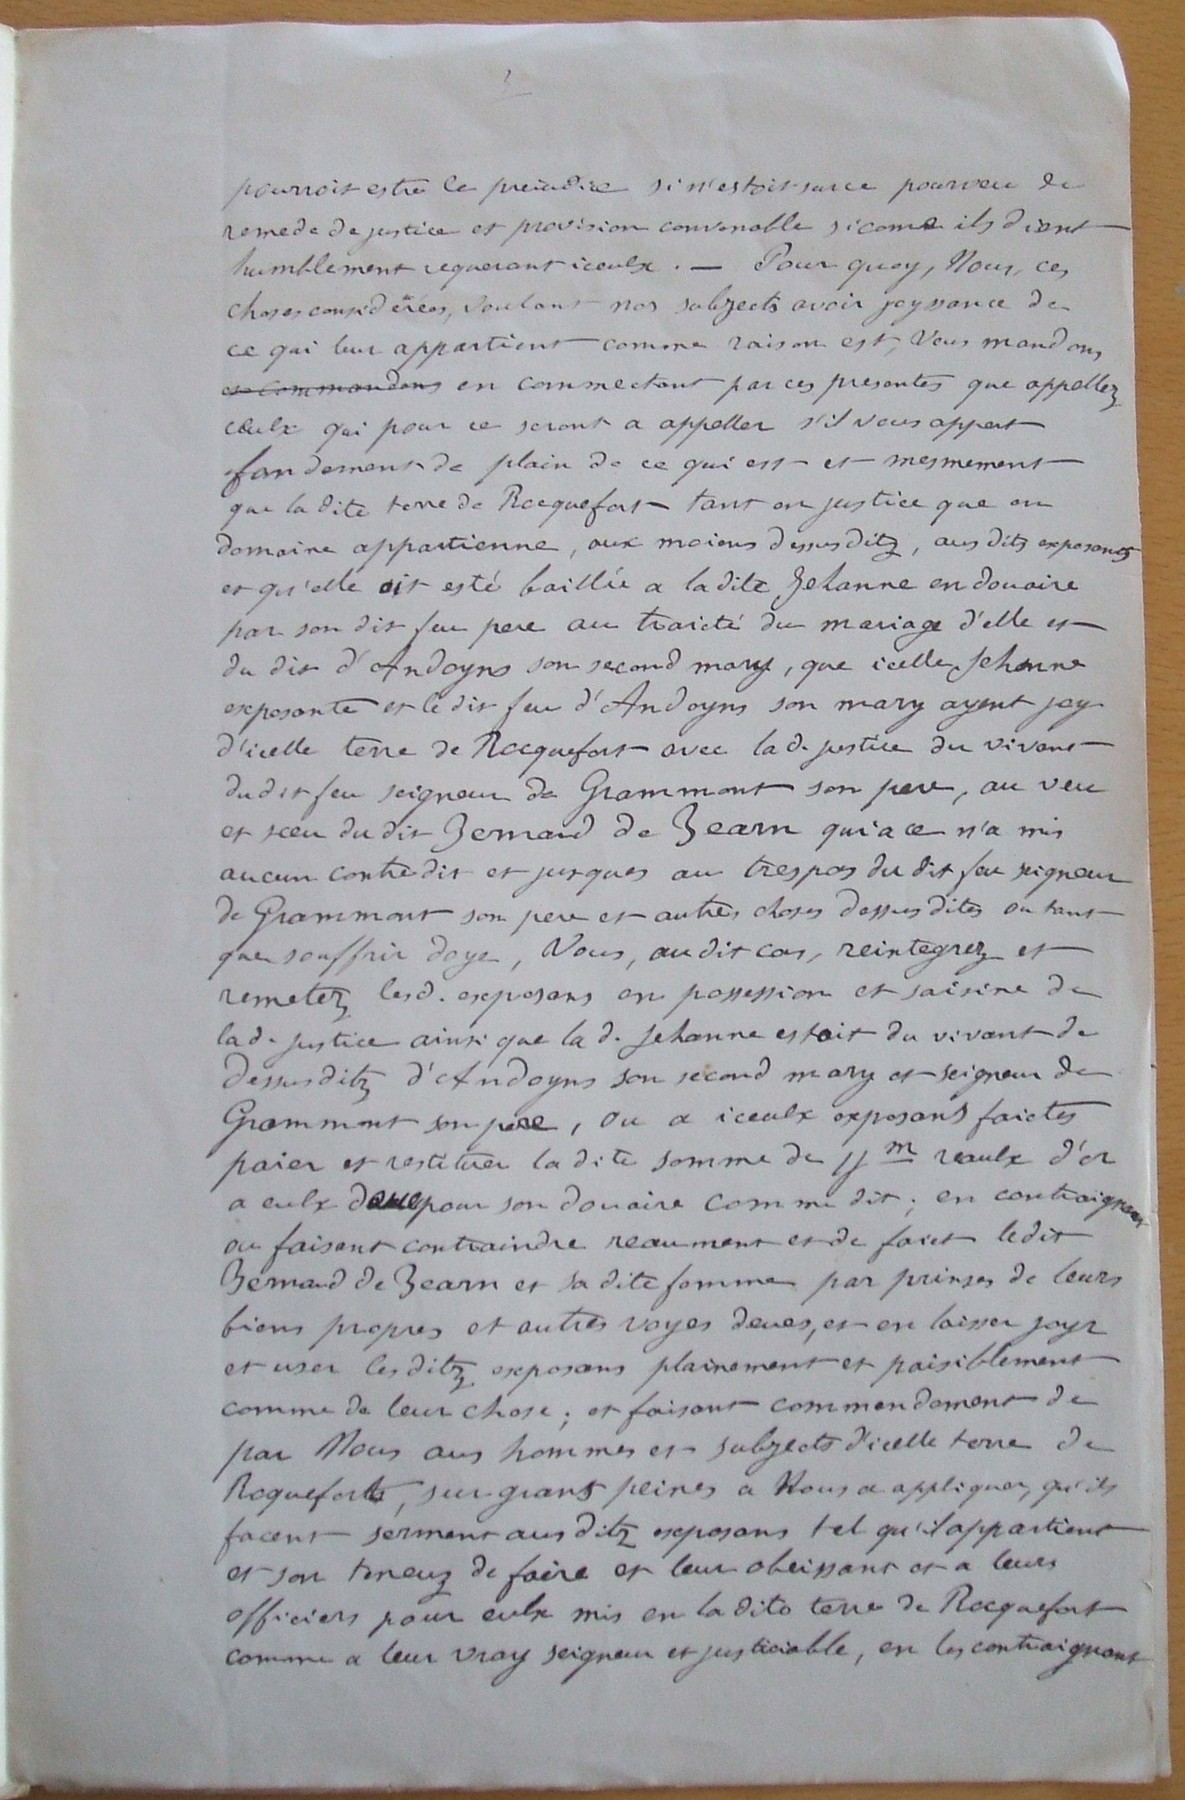 pourroit estre le preiudice si n'estoit sur ce pourveu de
remede de justice et provision convenable si come ils dient
humblement requerant iceulx. — Pour quoy, Nous, ces
choses considérées, voulant nos subjects avoir joyssance de
ce qui leur appartient comme raison est, Vous mandons
et commandons en commectant par ces presentes que appellez
ceulx qui pour ce seront a appeller s'il vous appert
fandement de plain de ce qui est et mesmement
que la dite terre de Rocquefort tant en justice que en
domaine appartienne, aux moiens dessusditz, ausditz exposants
et qu'elle ait esté baillée a la dite Jehanne en douaire
par son dit feu pere au traicté du mariage d'elle et
du dit d'Andoyns son second mary, que icelle Jehanne
exposante et le dit feu d'Andoyns son mary ayent joy
d'icelle terre de Rocquefort avec la d. justice du vivant
dudit feu seigneur de Grammont son pere, au veu
et sceu du dit Bernard de Bearn qui a ce n'a mis
aucun contredit et jusques au trespas du dit feu seigneur
de Grammont son pere et autres choses dessusdites ou tant
que souffrir doye, Vous, audit cas, reintegrez et
remetez lesd. exposans en possession et saisine de
la d. justice ainsi que la d. Jehanne estoit du vivant de
dessusditz d'Andoyns son second mary et seigneur de
Grammont son pere, ou a iceulx exposans faictes
paier et restituer la dite somme de ij m reaulx d'or
a eulx deue pour son douaire comme dit; en contraignant
ou faisant contraindre reaument et de faict ledit
Bernard de Bearn et sa dite femme par prinses de leurs
biens propres et autres voyes deues, et en laisser joyr
et user lesditz exposans plainement et paisiblement
comme de leur chose; et faisant commendement de
par Nous aus hommes et subjects d'icelle terre de
Roquefort, sur grans peines a Nous a appliquer, qu'ils
facent serment ausditz exposans tel qu'il appartient
et son tenuz de faire et leur obeissant et a leurs
officiers pour eulx mis en la dite terre de Rocquefort
comme a leur vray seigneur et justiciable, en les contraignant